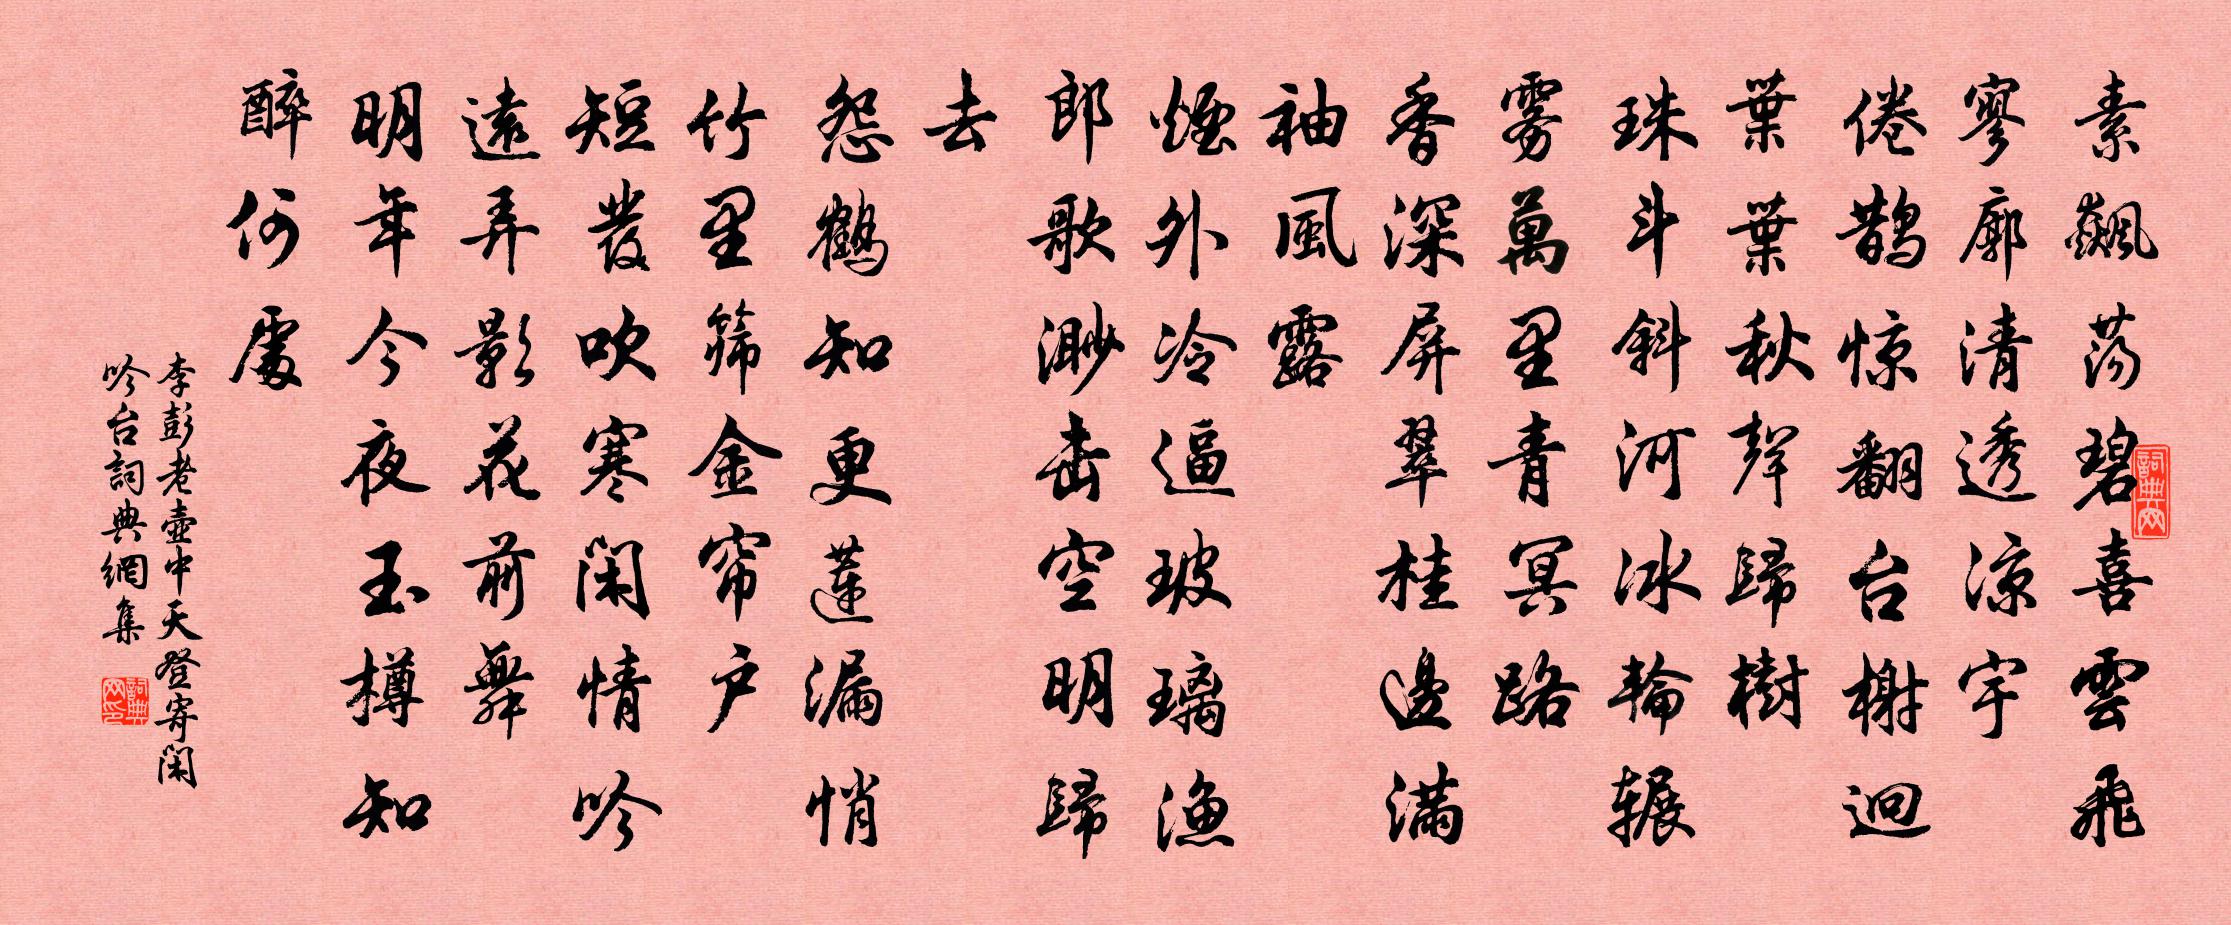 素飆荡碧喜雲飛
寥廓清透凉宇
倦鹊惊翻台榭迥
葉葉秋聲歸樹
珠斗斜河冰輪辗
雾萬里青冥路
香深屏翠桂邊满
袖風露
煙外冷逼玻璃渔
郎歌渺击空明歸
去
怨鶴知更蓮漏悄
竹里筛金帘户
短發吹寒闲情吟
遠弄影花前舞
明年今夜玉樽知
醉何處
李彭老壶中天登寄闲
吟台詞典網集
詞典网
詞典网印